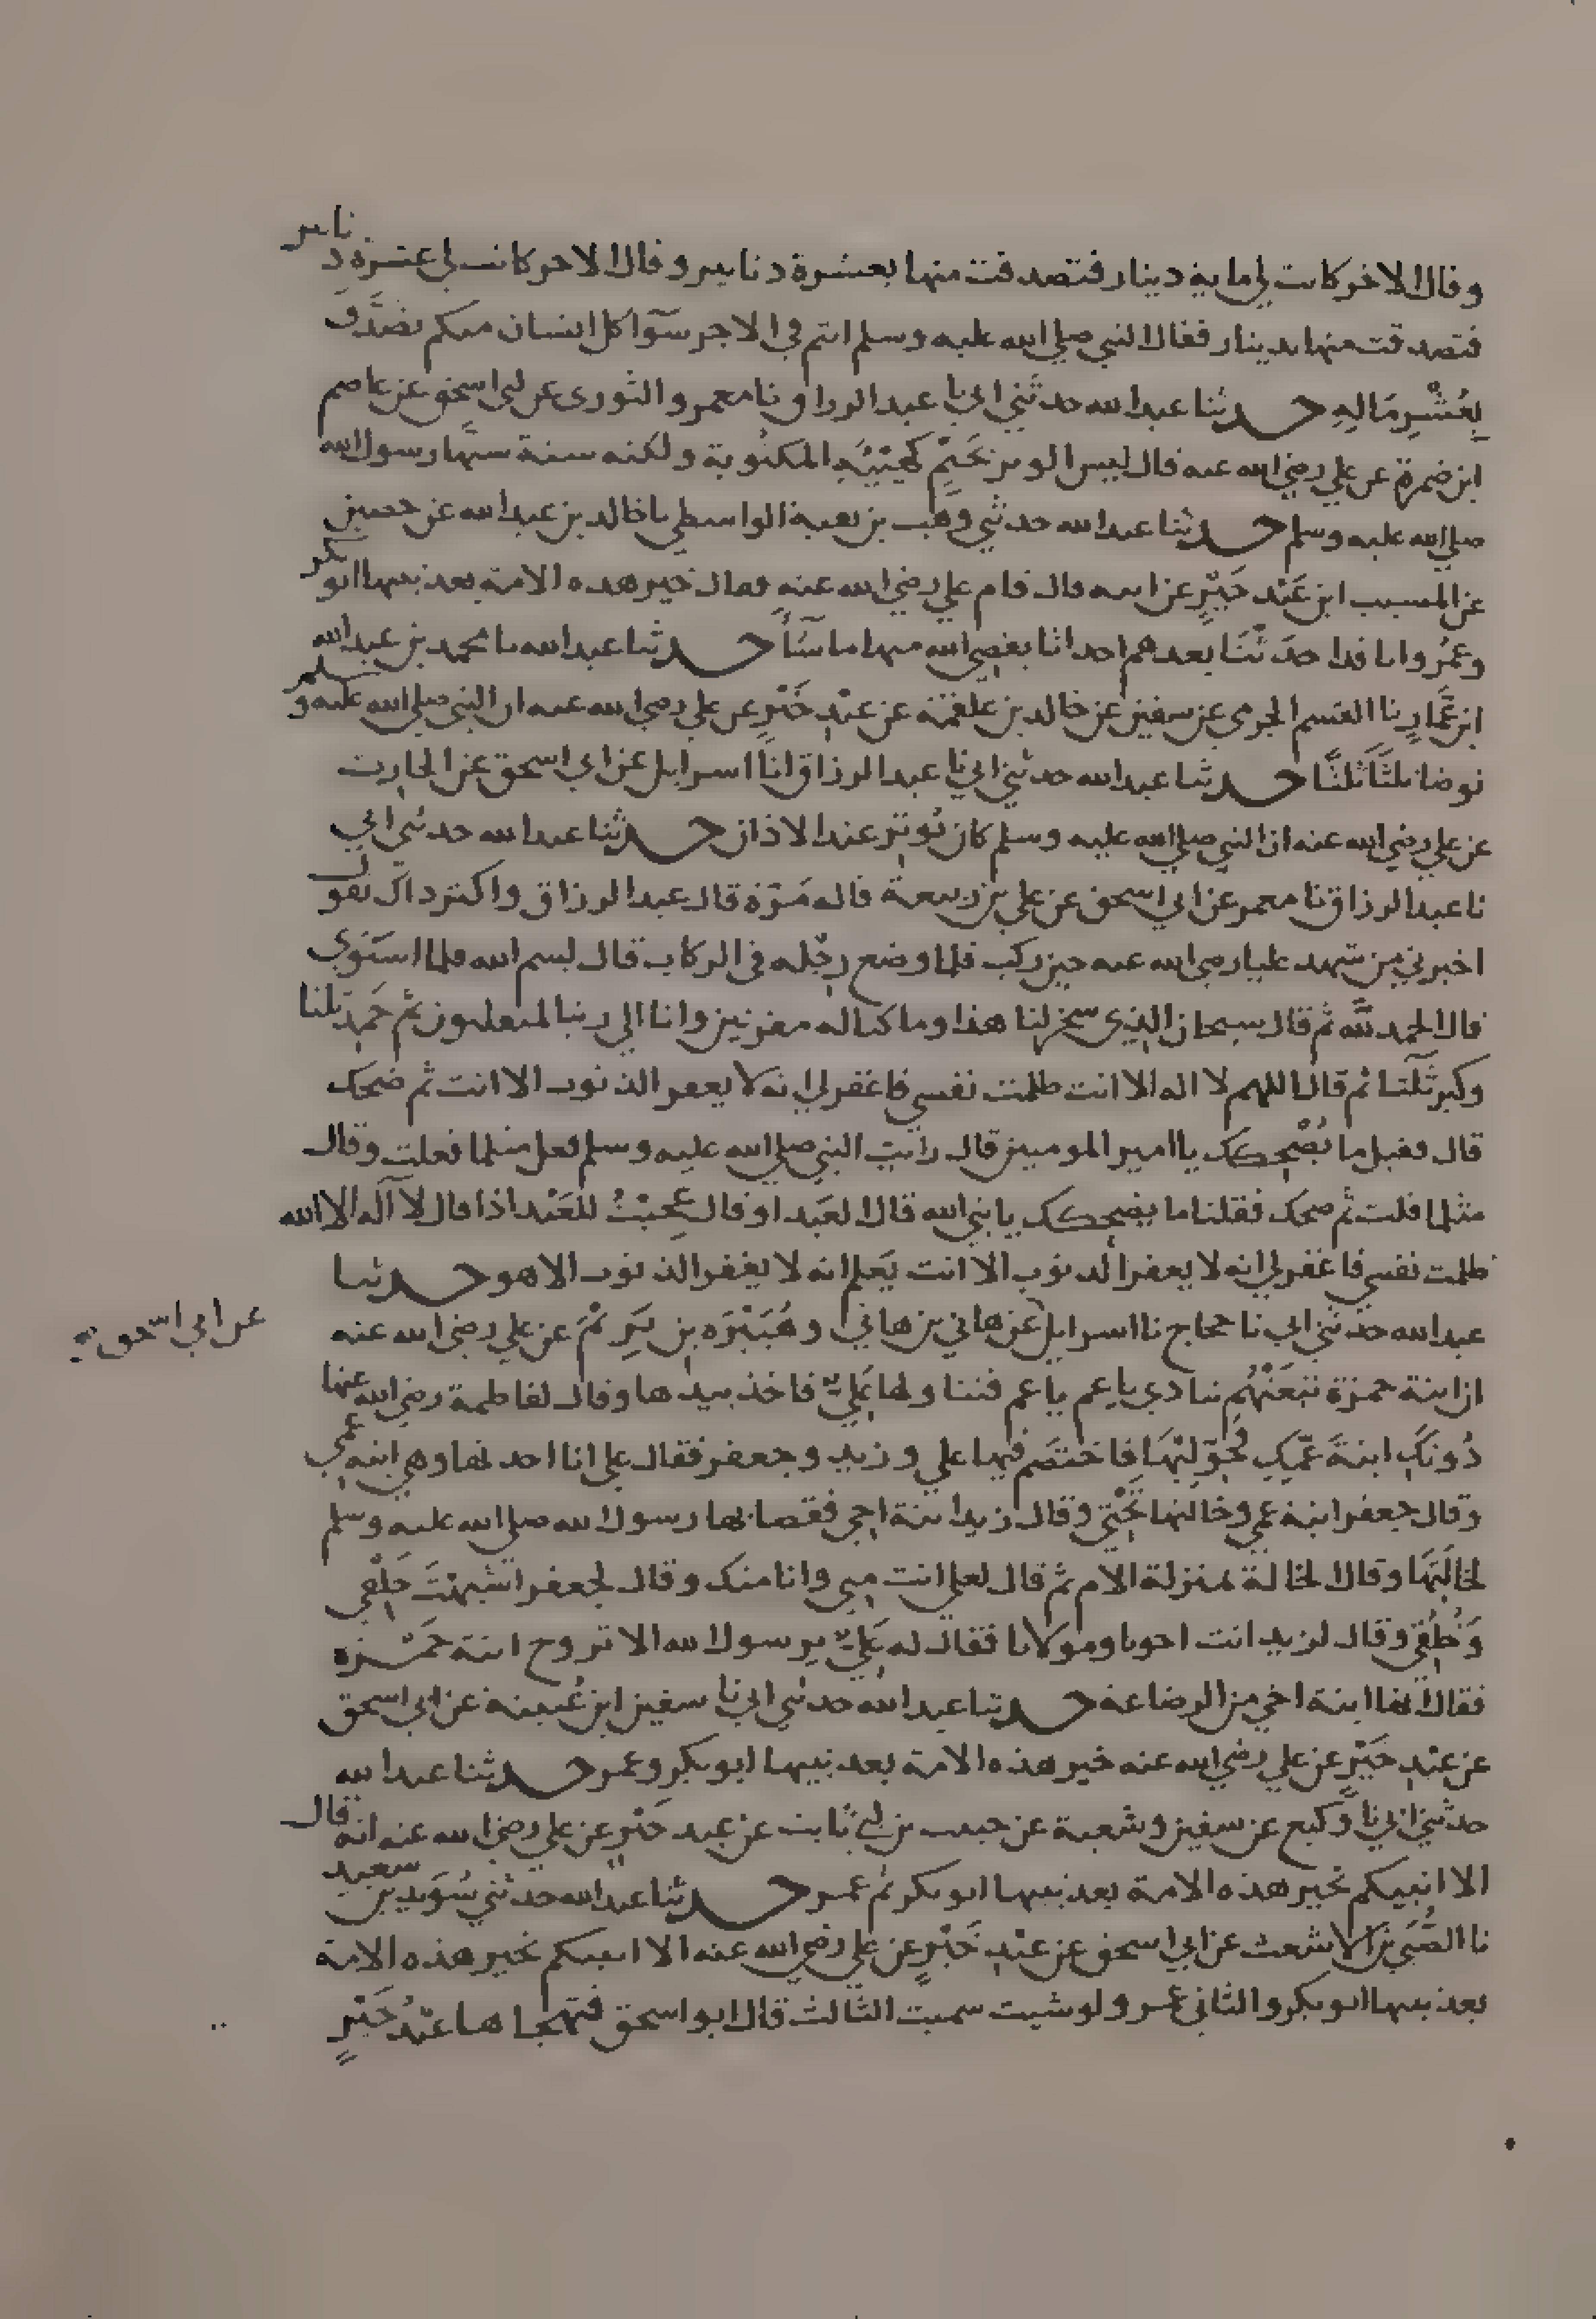 وقال الاخر كانت لي ماية دينار فتصدقت منها بعشرة دنانير وقال الاخر كانت لي عشرة دنانير
فتصدقت منها بدينار فقال النبي صلى الله عليه وسلم انتم في الاجر سَوَآ كل انسان منكم تصَدَّقَ
بِعُشْرِ مَالِهِ حدثنا عبد الله حدثني ابي نا عبد الرزاق نا معمر والثوري عن ابي اسحق عن عاصم
ابن ضمرة عن علي رضي الله عنه قال ليس الوتر بحَتْمٍ كهيْئَةِ المكتُوبة ولكنه سنة سنَّها رسول الله
صلى الله عليه وسلم حدثنا عبد الله حدثني وَهْب بن بقية الواسطي نا خالد بن عبد الله عن حصين
عن المسيب ابن عَبْد خَيْرٍ عن ابيه قال قام علي رضي الله عنه فقال خير هذه الامة بعد نبيها ابو بكر
وعُمرُ وانا قد احدَثْنَا بعدهم احداثا يقضي الله فيها ما شآءَ حدثنا عبد الله نا محمد بن عبد الله
ابن عَمَّارٍ نا القسم الجرمي عن سفين عن خالد بن علقمة عن عَبْدِ خَيْرٍ عن علي رضي الله عنه ان النبي صلى الله عليه وسلم
توضا ثلثًا ثلثًا حدثنا عبد الله حدثني ابي نا عبد الرزاق انا اسرايل عن ابي اسحق عن الحارث
عن علي رضي الله عنه ان النبي صلى الله عليه وسلم كان يُوتِر عند الاذان حدثنا عبد الله حدثني ابي
نا عبد الرزاق نا معمر عن ابي اسحق عن علي بن ربيعة قاله مَرّة قال عبد الرزاق واكثر ذاك يقول
اخبرني من شهد عليا رضي الله عنه حين ركب فلما وضع رِجْله في الركاب قال بسم الله فلما استوى
قال الحمد لله ثم قال سبحان الذي سخر لنا هذا وما كنا له مقرنين وانا الى ربنا لمنقلبون ثم حَمِدَ ثلثا
وكبر ثَلثا ثم قال اللهم لا اله الا انت ظلمت نفسي فاغفر لي انه لا يغفر الذنوب الا انت ثم ضحك
قال فقيل ما يُضْحِكك يا امير المومنين قال رايت النبي صلى الله عليه وسلم فعل مثلما فعلت وقال
مثلما قلت ثم ضحك فقلنا ما يضحكك يا نبي الله قال العَبد او قال عَجِبْتُ للعَبْد اذا قال لا آله الا الله
ظلمت نفسي فاغفر لي انه لا يغفر الذنوب الا انت يَعلم انه لا يغفر الذنوب الا هو حدثنا
عبد الله حدثني ابي نا حجاج نا اسرايل عن هاني بن هاني وهُبَيْرَه بن يَرِيْمَ عن علي رضي الله عنه
عن ابي اسحق
ان ابنة حمزة تتبعَتْهُم تنادي يا عم يا عم فتناولها عَليٌّ فاخذ بيدها وقال لفاطمة رضي الله عنها
دُونَكِ ابنةَ عَمِّكِ فحَوِّليْهَا فاختصَم فيها علي وزيد وجعفر فقال علي انا اخذتها وهي ابنه عمي
وقال جعفر ابنة عمي وخالتها تَحْتي وقال زيد ابنة اخي فقضا بها رسول الله صلى الله عليه وسلم
لخالَتِهَا وقال الخالة بمنزلة الام ثم قال لعلي انت مني وانا منك وقال لجعفر اشْبهْتَ خَلْقي
وَخُلُقي وقال لزيد انت اخونا ومولانا فقال له عَليٌّ يرسول الله الا تزوج ابنة حَمْزه
فقال انها ابنة اخي من الرضاعة حدثنا عبد الله حدثني ابي نا سفين ابن عُيينة عن ابي اسحق
عن عبْدِ خَيْرٍ عن علي رضي الله عنه خير هذه الامة بعد نبيها ابو بكرٍ وعمر حدثنا عبد الله
حدثني ابي نا وَكيع عن سفين وشعبة عن حبيب بن ابي ثابت عن عبد خَيْرٍ عن علي رضي الله عنه انه قال
الا انبيكم بخير هذه الامة بعد نبيها ابو بكر ثم عمر حدثنا عبد الله حدثني سُوَيد بن سعيد
نا الصُّبَي بن الاشعث عن ابي اسحق عن عبْدِ خَيْرٍ عن علي رضي الله عنه الا انبيكم بخير هذه الامة
بعد نبيها ابو بكر والثاني عمر ولو شيت سميت الثالث قال ابو اسحق فتهجاها عبْدُ خَيْرٍ